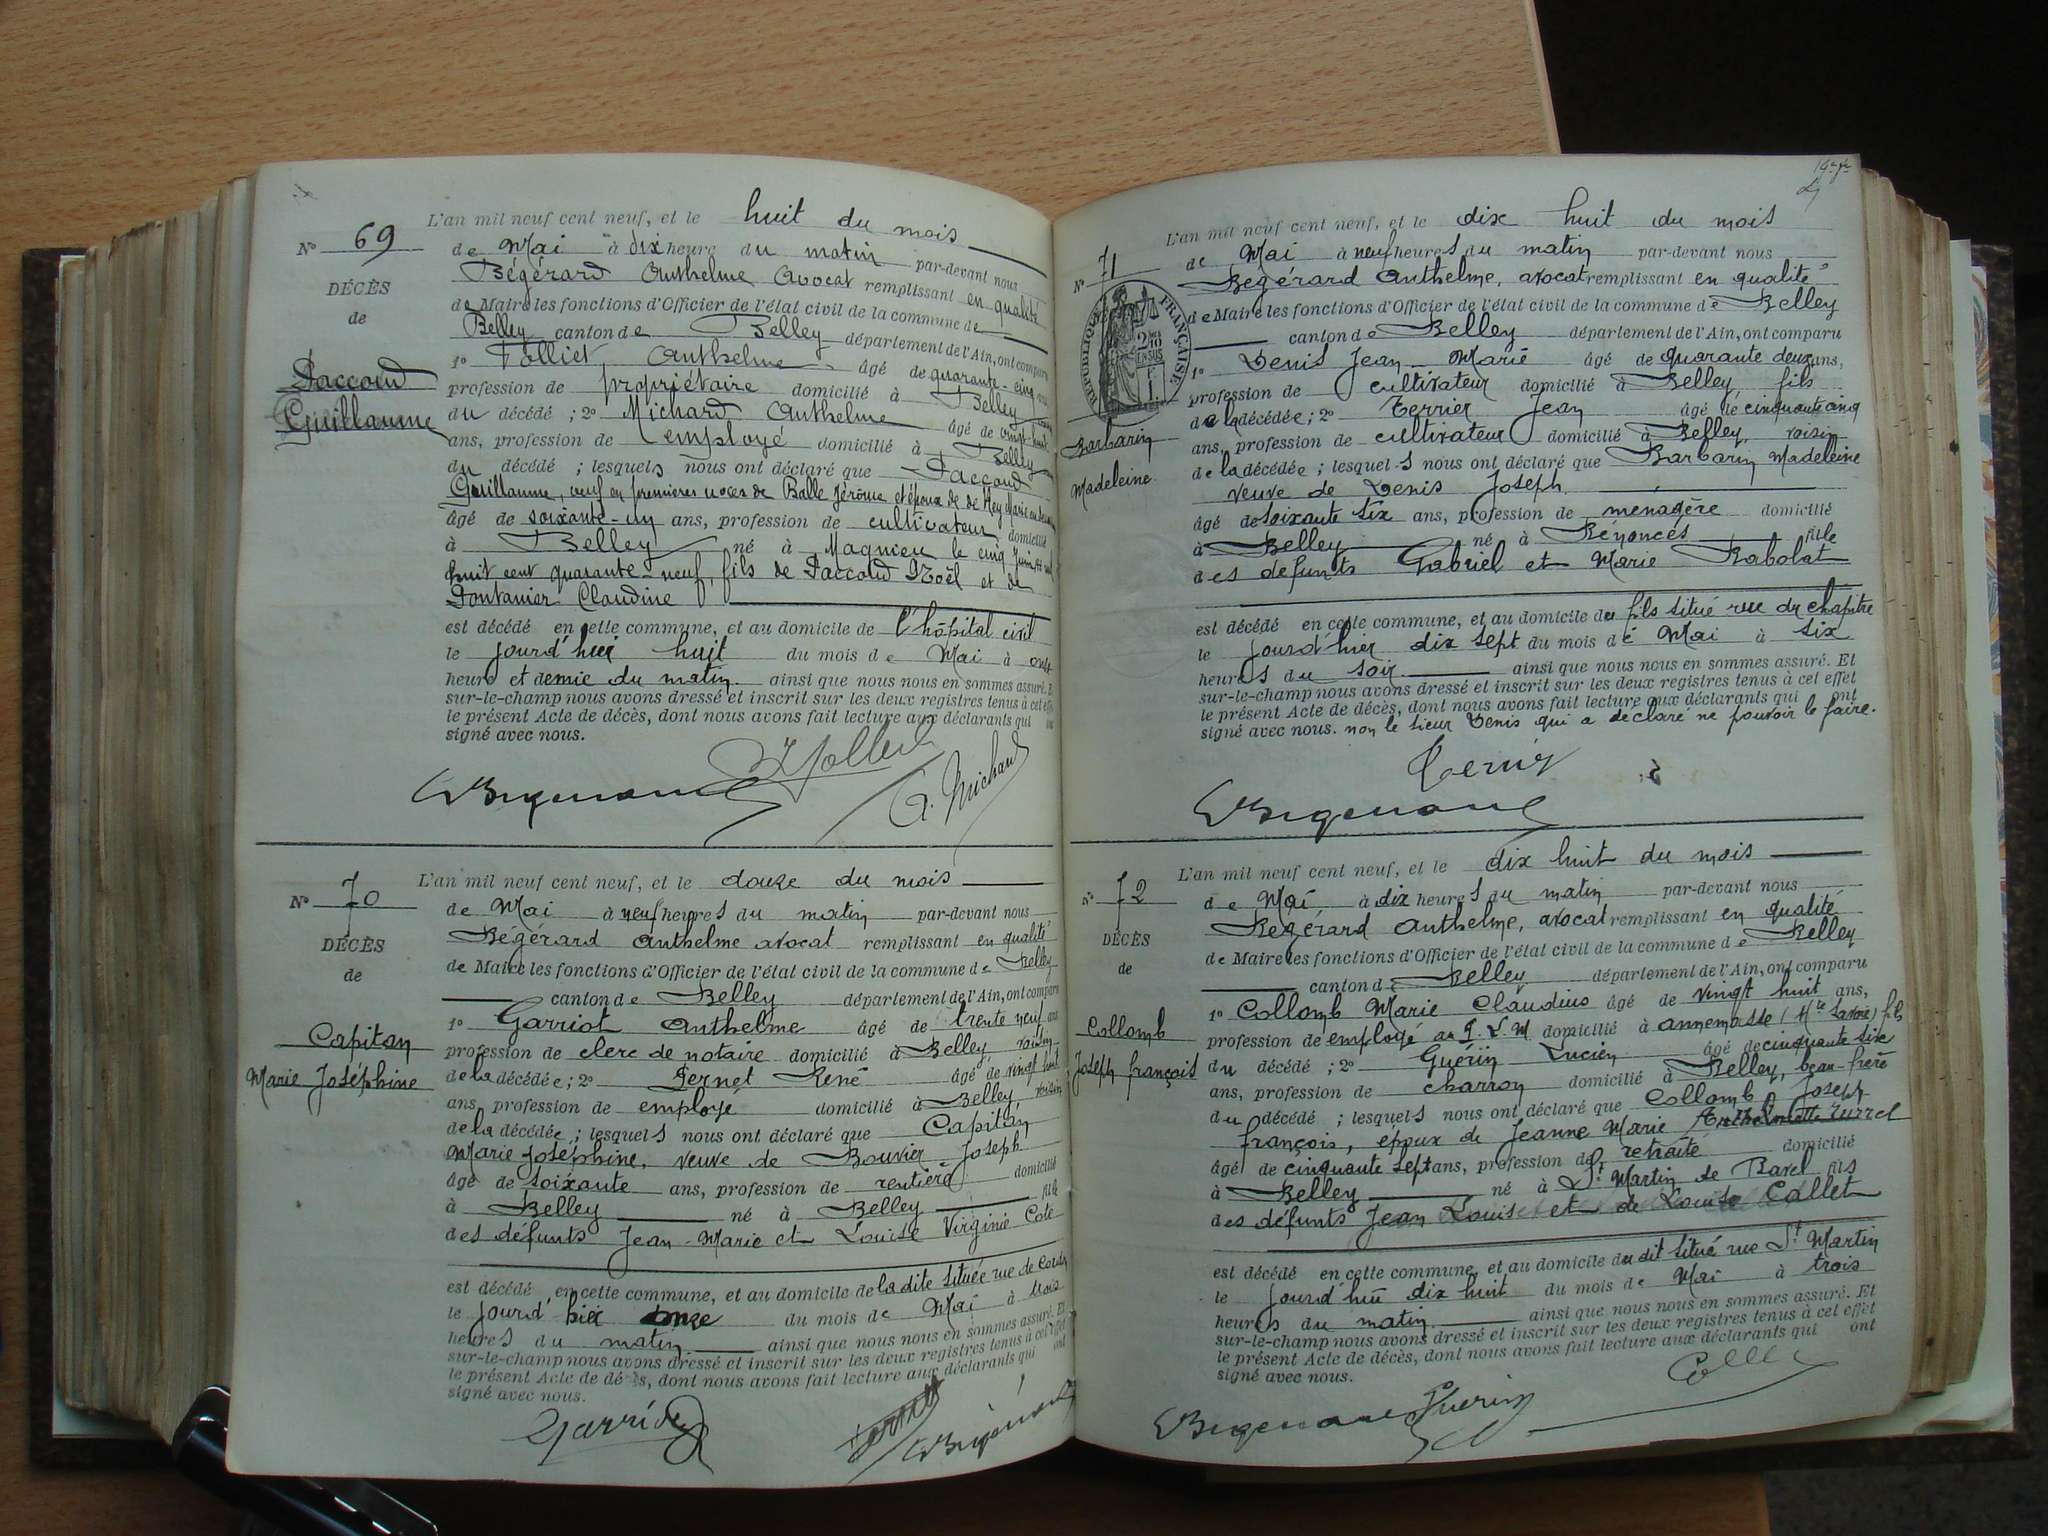 L'an mil neuf cent neuf, et le huit du mois
N° 69 de Mai à dix heure du matin par-devant nous
DÉCÈS Bégérard Anthelme Avocat remplissant en qualité
de de Maire les fonctions d'Officier de l'état civil de la commune de
Belley canton de Belley département de l'Ain, ont comparu
1° Folliet Anthelme âgé de quarante-cinq ans
Paccoud profession de propriétaire domicilié à Belley
Guillaume du décédé ; 2° Michard Anthelme âgé de vingt-huit
ans, profession de employé domicilié à Belley
du décédé ; lesquels nous ont déclaré que Paccoud
Guillaume, veuf en premières noces de Balle Jérôme et époux de de Rey Marie
âgé de soixante-un ans, profession de cultivateur domicilié
à Belley né à Magnieu le cinq Juin mil
huit cent quarante-neuf, fils de Paccoud Noël et de
Pontanier Claudine
est décédé en cette commune, et au domicile de l'hôpital civil
le jourd'hui huit du mois de Mai à onze
heure et demie du matin ainsi que nous nous en sommes assuré. Et
sur-le-champ nous avons dressé et inscrit sur les deux registres tenus à cet effet
le présent Acte de décès, dont nous avons fait lecture aux déclarants qui ont
signé avec nous.
A. Michard
L'an mil neuf cent neuf, et le douze du mois
N° 70 de Mai à neuf heures du matin par-devant nous
DÉCÈS Bégérard Anthelme avocat remplissant en qualité
de de Maire les fonctions d'Officier de l'état civil de la commune de Belley
canton de Belley département de l'Ain, ont comparu
1° Garriot Anthelme âgé de trente neuf ans
Capitan profession de clerc de notaire domicilié à Belley voisin
Marie Joséphine de la décédée ; 2° Pernet René âgé de vingt huit
ans, profession de employé domicilié à Belley voisin
de la décédée ; lesquels nous ont déclaré que Capitan
Marie Joséphine, veuve de Bouvier Joseph
âgé de soixante ans, profession de rentière domicilié
à Belley né à Belley fille
des défunts Jean-Marie et Louise Virginie Cote
est décédé en cette commune, et au domicile de la dite située rue de
le jourd'hier onze du mois de Mai à trois
heures du matin ainsi que nous nous en sommes assuré. Et
sur-le-champ nous avons dressé et inscrit sur les deux registres tenus à cet effet
le présent Acte de décès, dont nous avons fait lecture aux déclarants qui ont
signé avec nous.
Garriot
L'an mil neuf cent neuf, et le dix huit du mois
N° 71 de Mai à neuf heures du matin par-devant nous
Bégérard Anthelme, avocat remplissant en qualité
de Maire les fonctions d'Officier de l'état civil de la commune de Belley
canton de Belley département de l'Ain, ont comparu
RÉPUBLIQUE FRANÇAISE
1° Denis Jean-Marie âgé de quarante deux ans,
profession de cultivateur domicilié à Belley, fils
de la décédée ; 2° Terrier Jean âgé de cinquante cinq
Barbarin ans, profession de cultivateur domicilié à Belley, voisin
de la décédée ; lesquels nous ont déclaré que Barbarin Madeleine
Madeleine veuve de Denis Joseph
âgé de soixante six ans, profession de ménagère domicilié
à Belley né à Rénoncés fille
des défunts Gabriel et Marie Rabolat
est décédé en cette commune, et au domicile du fils situé rue du chapitre
le jourd'hier dix sept du mois de Mai à six
heures du soir ainsi que nous nous en sommes assuré. Et
sur-le-champ nous avons dressé et inscrit sur les deux registres tenus à cet effet
le présent Acte de décès, dont nous avons fait lecture aux déclarants qui ont
signé avec nous. non le sieur Denis qui a déclaré ne pouvoir le faire.
L'an mil neuf cent neuf, et le dix huit du mois
N° 72 de Mai à dix heures du matin par-devant nous
Bégérard Anthelme, avocat remplissant en qualité
DÉCÈS de Maire les fonctions d'Officier de l'état civil de la commune de Belley
de canton de Belley département de l'Ain, ont comparu
1° Collomb Marie Claudius âgé de vingt huit ans,
Collomb profession de employé au P. L. M domicilié à annemasse (Hte Savoie) fils
Joseph françois du décédé ; 2° Guérin Lucien âgé de cinquante six
ans, profession de charron domicilié à Belley, beau-frère
du décédé ; lesquels nous ont déclaré que Collomb Joseph
françois, époux de Jeanne Marie
âgé de cinquante sept ans, profession de retraité domicilié
à Belley né à St Martin de Bavel fils
des défunts Jean Louis et de Louise Callet
est décédé en cette commune, et au domicile du dit situé rue St Martin
le jourd'hui dix huit du mois de Mai à trois
heures du matin ainsi que nous nous en sommes assuré. Et
sur-le-champ nous avons dressé et inscrit sur les deux registres tenus à cet effet
le présent Acte de décès, dont nous avons fait lecture aux déclarants qui ont
signé avec nous.
Guérin